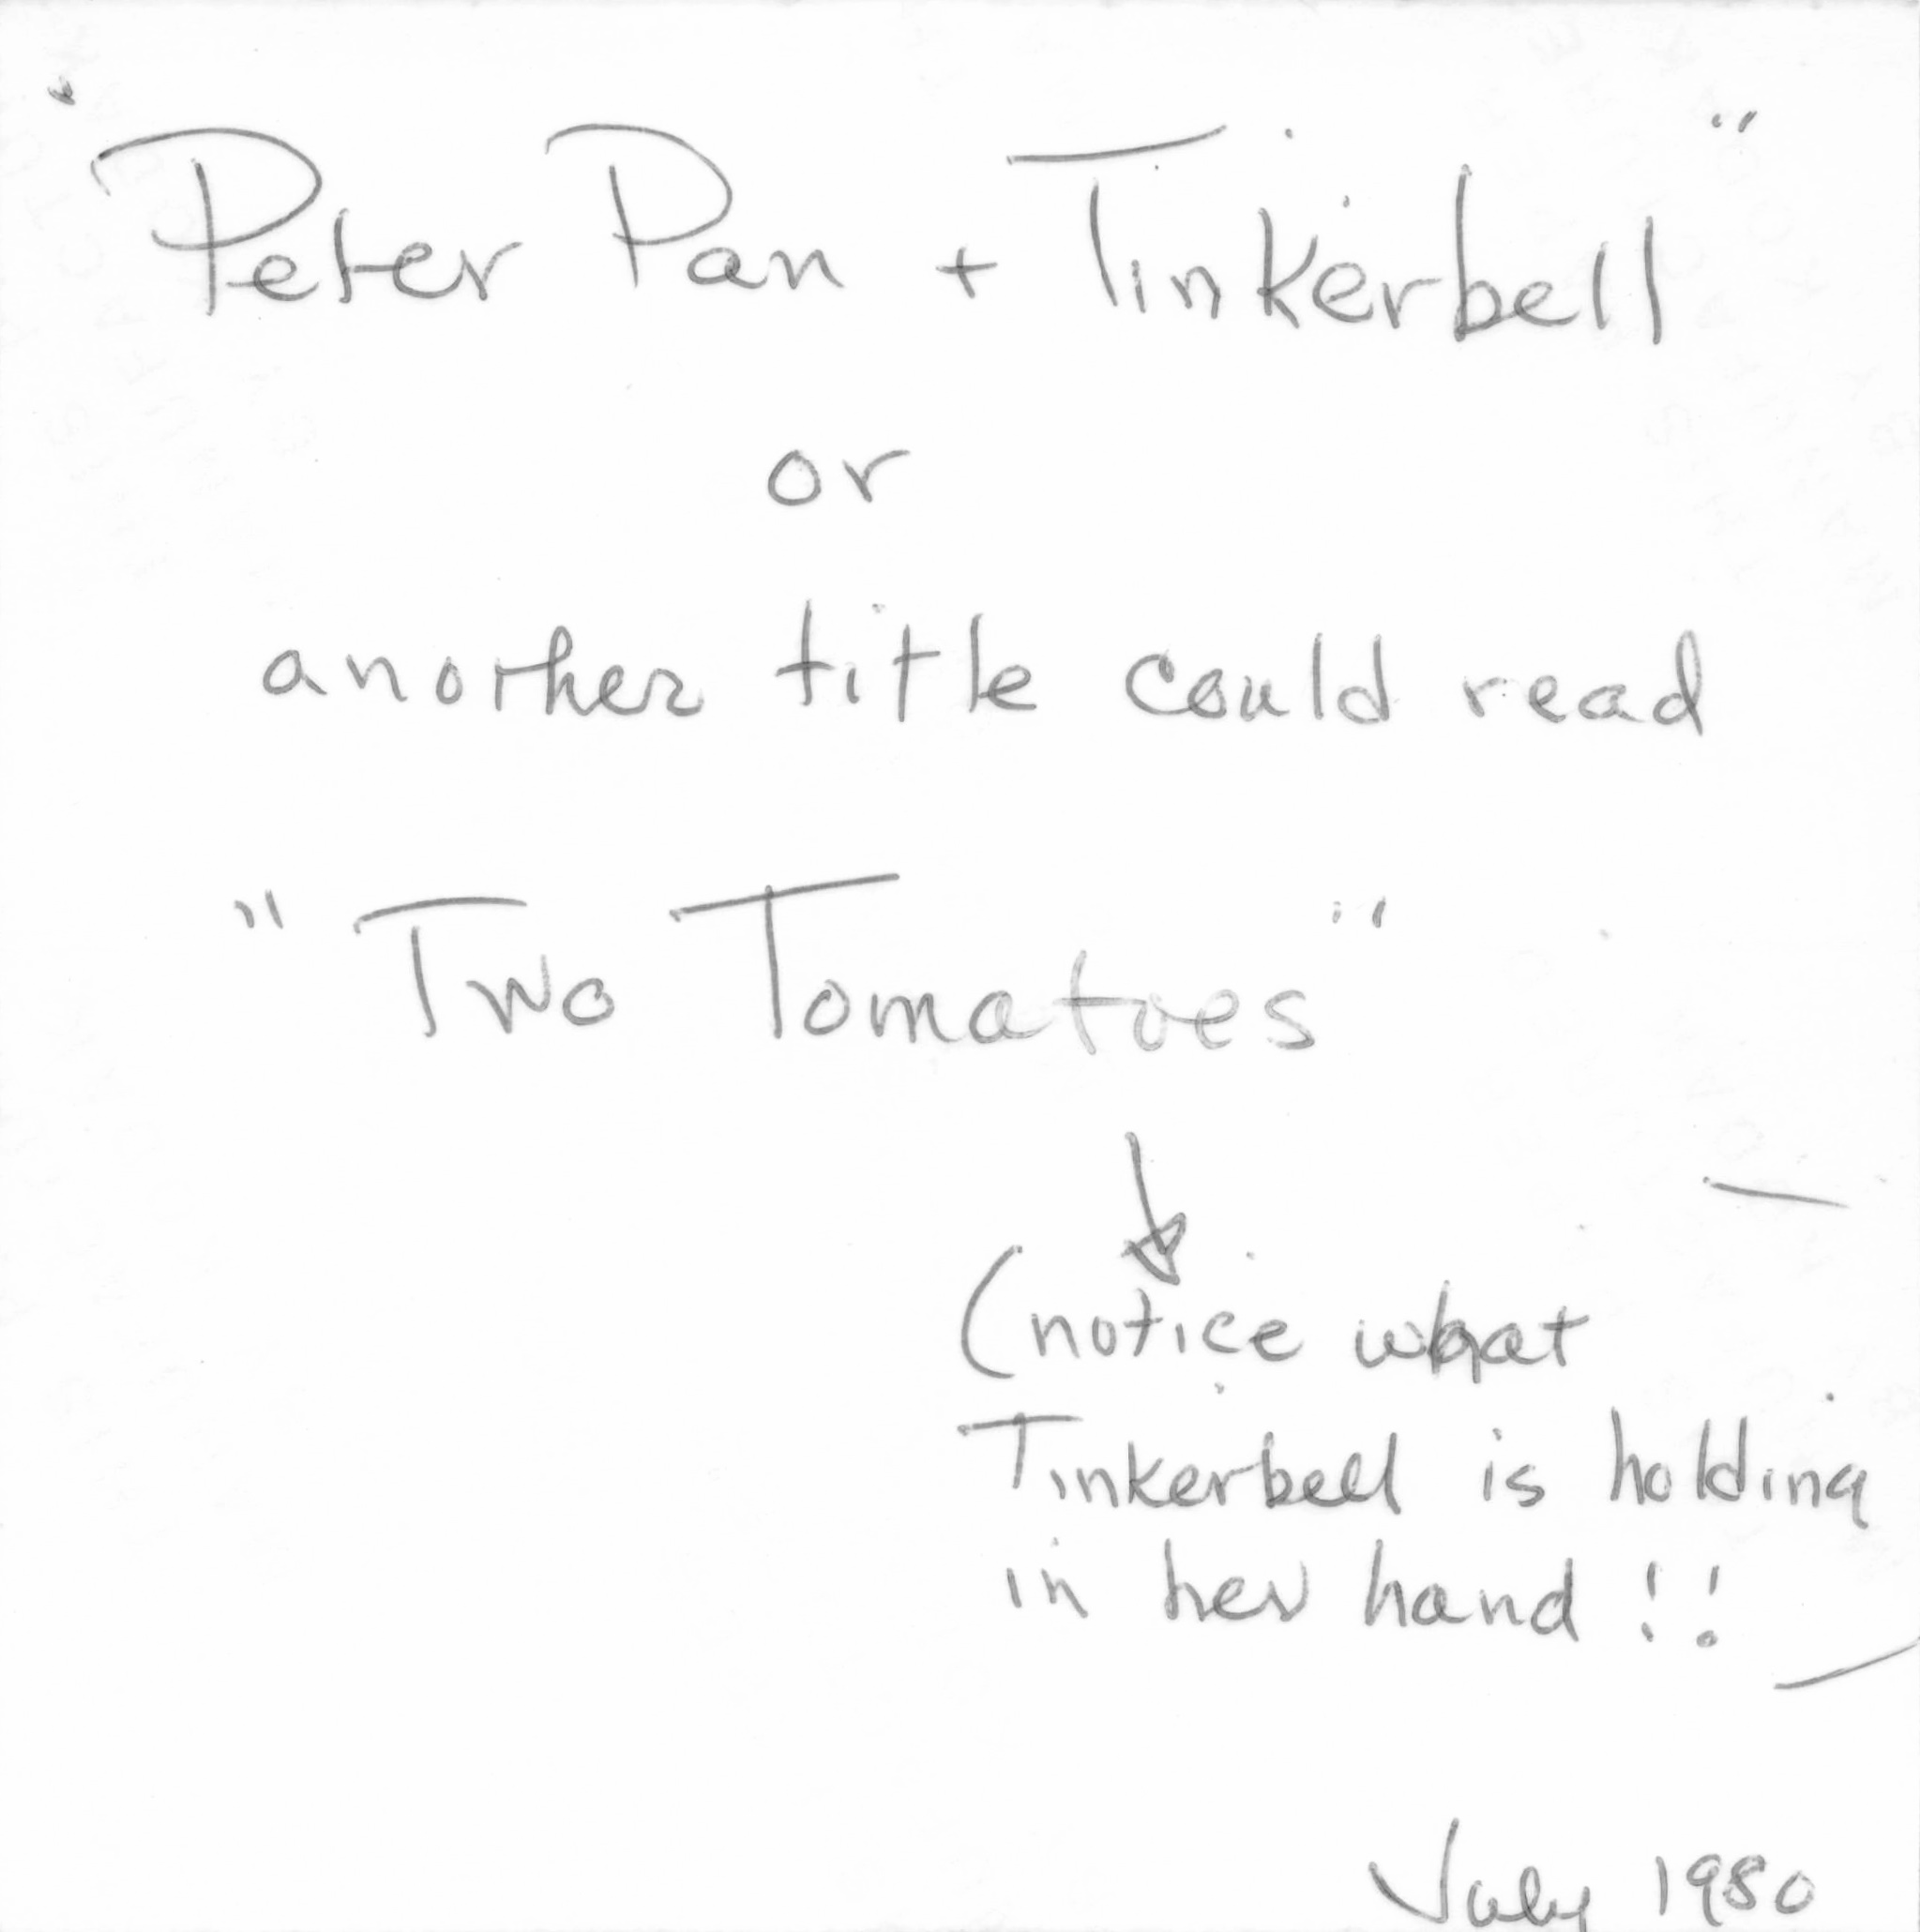 "Peter Pan + Tinkerbell"
or
another title could read
"Two Tomatoes"
(notice what
Tinkerbell is holding
in her hand !!)
July 1980